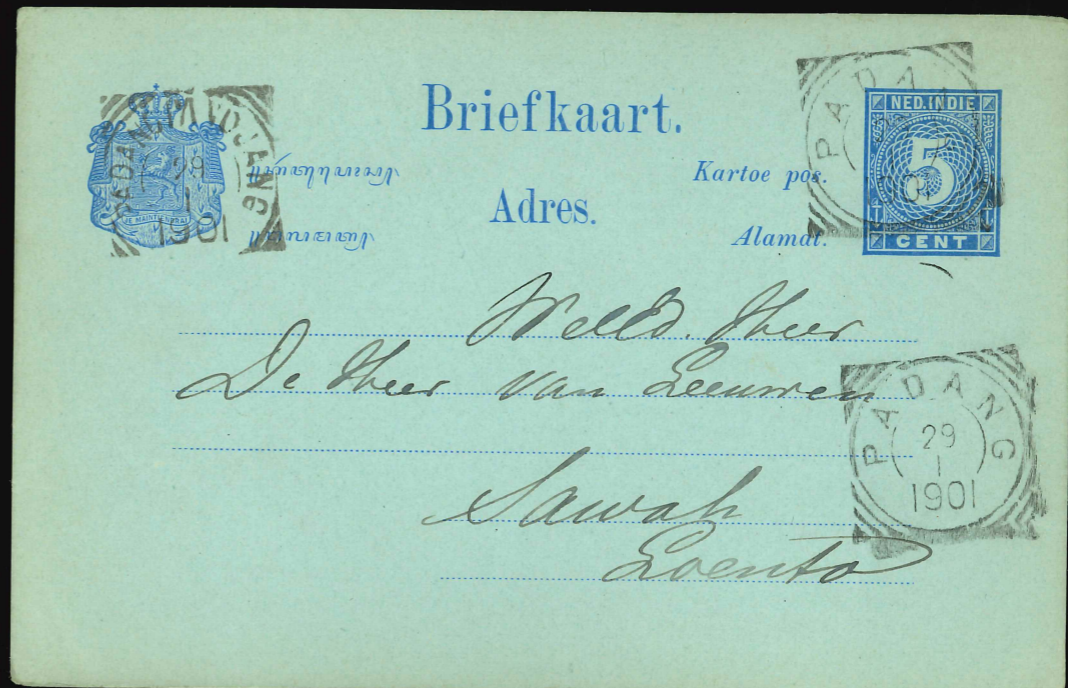 Briefkaart.
Kartoe pos.
Adres.
Alamat.
NED.INDIE
5
CENT
JE MAINTIENDRAI
PADANG PANDJANG
29
1
1901
PADANG
PADANG
29
1
1901
WelEd. Heer
De Heer van Leeuwen
Sawah
Loento